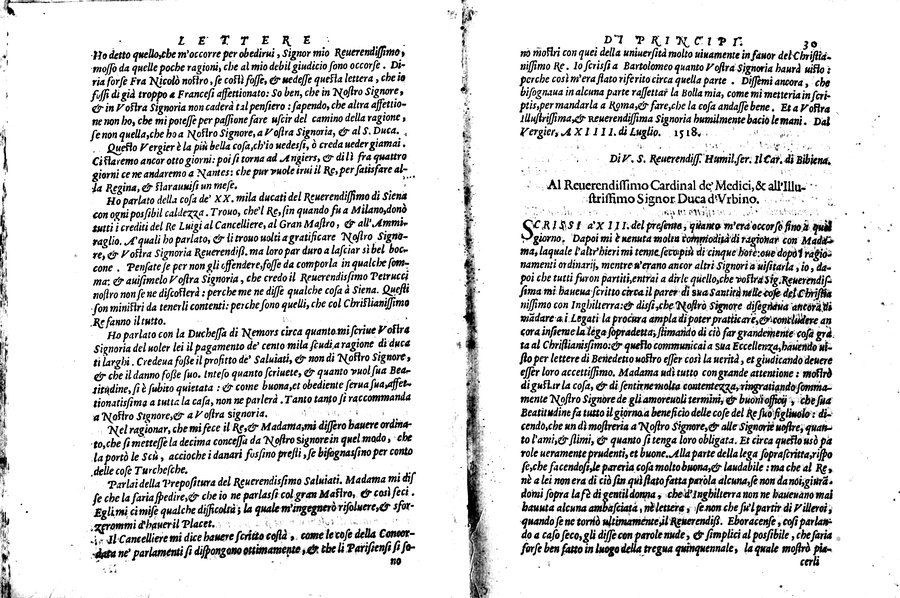 LETTERE
Ho detto quello, che m'occorre per obedirui, Signor mio Reuerendissimo,
mosso da quelle poche ragioni, che al mio debil giudicio sono occorse. Di
ria forse Fra Nicolò nostro, se costì fosse, & uedesse questa lettera, che io
fussi di già troppo a Francesi affettionato: So ben, che in Nostro Signore,
& in Vostra Signoria non caderà tal pensiero: sapendo, che altra affettio-
ne non ho, che mi potesse per passion fare uscir del camino della ragione,
se non quella, che ho a Nostro Signore, a Vostra Signoria, & al S. Duca.
Questo Vergier è la più bella cosa, ch'io uedessi, ò creda ueder giamai.
Ci staremo ancor otto giorni: poi si torna ad Angiers, & di lì fra quattro
giorni ce ne andaremo a Nantes: che pur vuole irui il Re, per satisfare al-
la Regina, & starauuisi un mese.
Ho parlato della cosa de' XX. mila ducati del Reuerendissimo di Siena
con ogni possibil caldezza. Trouo, che'l Re, sin quando fu a Milano, donò
tutti i crediti del Re Luigi al Cancelliere, al Gran Mastro, & all'Ammi-
raglio. A' quali ho parlato, & li trouo uolti a gratificare Nostro Signo-
re, & Vostra Signoria Reuerendiss. ma loro par duro a lasciar sì bel boc-
cone. Pensate se per non gli offendere, fosse da comporla in qualche som-
ma: & auisimelo Vostra Signoria, che credo il Reuerendissimo Petrucci
nostro non se ne discosterà: perche me ne disse qualche cosa à Siena. Questi
son ministri da tenerli contenti: perche sono quelli, che col Christianissimo
Re fanno il tutto.
Ho parlato con la Duchessa di Nemors circa quanto mi scriue Vostra
Signoria del uoler lei il pagamento de' cento mila scudi, a ragione di duca
ti larghi. Credeua fosse il profitto de' Saluiati, & non di Nostro Signore,
& che il danno fosse suo. Inteso quanto scriuete, & quanto vuol sua Bea-
titudine, si è subito quietata: & come buona, et obediente serua sua, affet-
tionatissima a tutta la casa, non ne parlerà. Tanto tanto si raccommanda
a Nostro Signore, & a Vostra signoria.
Nel ragionar, che mi fece il Re, & Madama, mi dissero hauere ordina-
to, che si mettesse la decima concessa da Nostro signore in quel modo, che
la portò le Scù, accioche i danari fossino presti, se bisognassino per conto
delle cose Turchesche.
Parlai della Prepositura del Reuerendissimo Saluiati. Madama mi dis
se che la faria spedire, & che io ne parlassi col gran Mastro, & così feci.
Egli mi ci mise qualche difficoltà, la quale m'ingegnerò risoluere, & sfor-
zerommi d'hauer il Placet.
Il Cancelliere mi dice hauere scritto costà, come le cose della Concor-
data ne' parlamenti si dispongono ottimamente, & che li Parisiensi si so-
no
DI PRINCIPI. 30
no mostri con quei della uniuersità molto uiuamente in fauor del Christia-
nissimo Re. Io scrissi a Bartolomeo quanto Vostra Signoria haurà uisto:
perche così m'era stato riferito circa quella parte. Dissemi ancora, che
bisognaua in alcuna parte rassettar la Bolla mia, come metteria in scri-
ptis, per mandarla a Roma, & fare, che la cosa andasse bene. Et a Vostra
Illustrissima, & Reuerendissima Signoria humilmente bacio le mani. Dal
Vergier, A XIIII. di Luglio. 1518.
Di V. S. Reuerendiss. Humil. ser. Il Car. di Bibiena.
Al Reuerendissimo Cardinal de' Medici, & all'Illu-
strissimo Signor Duca d'Vrbino.
SCRISSI a' XIII. del presente, quanto m'era occorso fino a quel
giorno. Dapoi mi è uenuta molta commodità di ragionar con Mada-
ma, laquale l'altr'hieri mi tenne seco più di cinque hore: oue dopo i ragio-
namenti ordinarij, mentre u'erano ancor altri Signori a uisitarla, io, da-
poi che tutti furon partiti, entrai a dirle quello, che vostra Sig. Reuerendis-
sima mi haueua scritto circa il parer di sua Santità nelle cose del Christia
nissimo con Inghilterra: & dissi, che Nostro Signore disegnaua ancora di
mādare a i Legati la procura ampla di poter praticare, & concludere an
cora insieme la lega sopradetta, stimando di ciò far grandemente cosa gra
ta al Christianissimo: & questo communicai a sua Eccellenza, hauendo ui-
sto per lettere di Benedetto uostro esser così la uerità, et giudicando deuere
esser loro accettissimo. Madama udì tutto con grande attentione: mostrò
di gustar la cosa, & di sentirne molta contentezza, ringratiando somma-
mente Nostro Signore de gli amoreuoli termini, & buoni officij, che sua
Beatitudine fa tutto il giorno a beneficio delle cose del Re suo figliuolo: di-
cendo, che un dì mostreria a Nostro Signore, & alle Signorie uostre, quan-
to l'ami, & stimi, & quanto si tenga loro obligata. Et circa questo usò pa
role ueramente prudenti, et buone. Alla parte della lega soprascritta, rispo
se, che facendosi, le pareria cosa molto buona, & laudabile: ma che al Re,
nè a lei non era di ciò sin quì stato fatta parola alcuna, se non da noi, giurā
domi sopra la fè di gentil donna, che d'Inghilterra non ne haueuano mai
hauuta alcuna ambasciata, nè lettera, se non che su'l partir di Villeroi,
quando se ne tornò ultimamente, il Reuerendiss. Eboracense, così parlan-
do a caso seco, gli disse con parole nude, & simplici al possibile, che saria
forse ben fatto in luogo della tregua quinquennale, la quale mostrò pia-
cerli